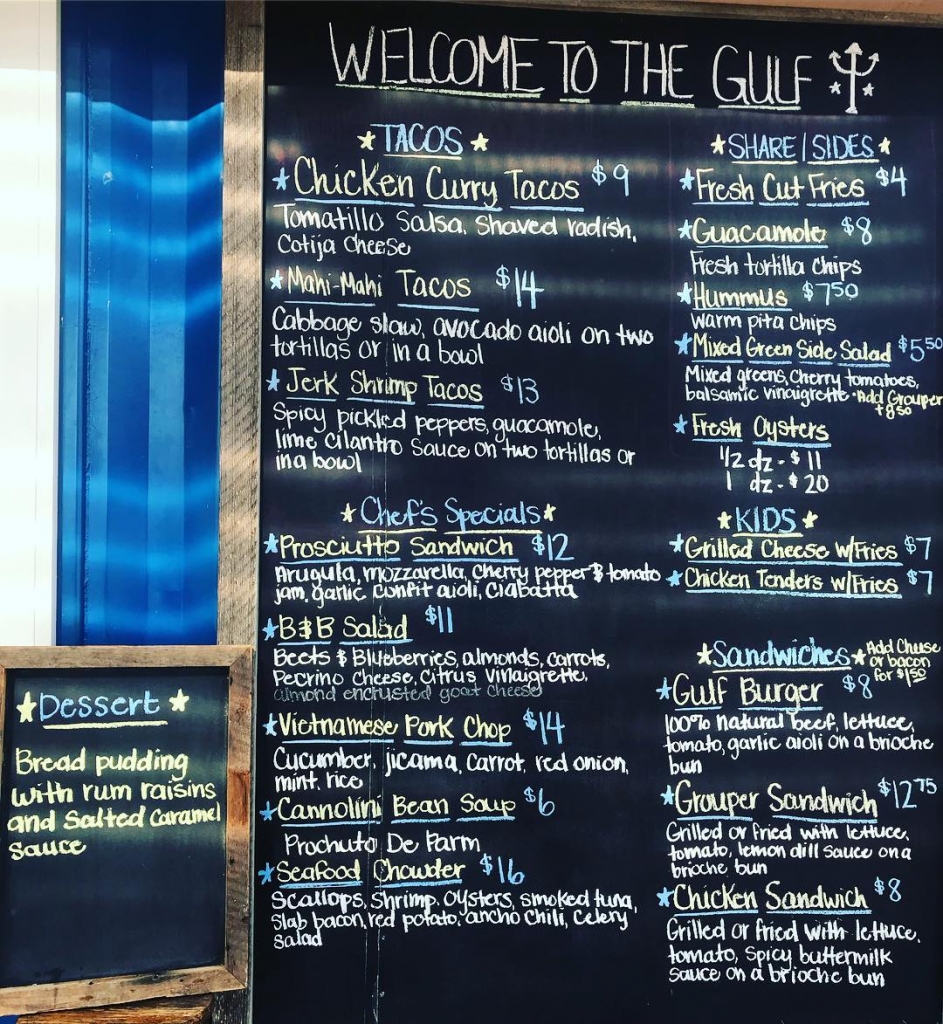 WELCOME TO THE GULF
TACOS
Chicken Curry Tacos $9
Tomatillo Salsa, Shaved radish,
Cotija Cheese
Mahi-Mahi Tacos $14
Cabbage slaw, avocado aioli on two
tortillas or in a bowl
Jerk Shrimp Tacos $13
Spicy pickled peppers, guacamole,
lime cilantro sauce on two tortillas or
in a bowl
Chef's Specials
Prosciutto Sandwich $12
Arugula, mozzarella, Cherry pepper & tomato
jam, garlic confit aioli, Ciabatta
B&B Salad $11
Beets & Blueberries, almonds, carrots,
Pecrino cheese, Citrus Vinaigrette,
almond encrusted goat cheese
Vietnamese Pork Chop $14
Cucumber, jicama, Carrot, red onion,
mint, rice
Cannolini Bean Soup $6
Prochuto De Parm
Seafood Chowder $16
Scallops, Shrimp, Oysters, smoked tuna,
Slab bacon, red potato, ancho chili, Celery
Salad
SHARE | SIDES
Fresh Cut Fries $4
Guacamole $8
Fresh tortilla chips
Hummus $7.50
warm pita chips
Mixed Green Side Salad $5.50
Mixed greens, Cherry tomatoes,
balsamic vinaigrette • Add Grouper
+8.50
Fresh Oysters
1/2 dz - $11
1 dz - $20
KIDS
Grilled Cheese w/Fries $7
Chicken Tenders w/Fries $7
Sandwiches
Add Cheese
or bacon
for $1.50
Gulf Burger $8
100% natural beef, lettuce,
tomato, garlic aioli on a brioche
bun
Grouper Sandwich $12.75
Grilled or fried with lettuce,
tomato, lemon dill sauce on a
brioche bun
Chicken Sandwich $8
Grilled or fried with lettuce,
tomato, spicy buttermilk
sauce on a brioche bun
Dessert
Bread pudding
with rum raisins
and salted caramel
sauce